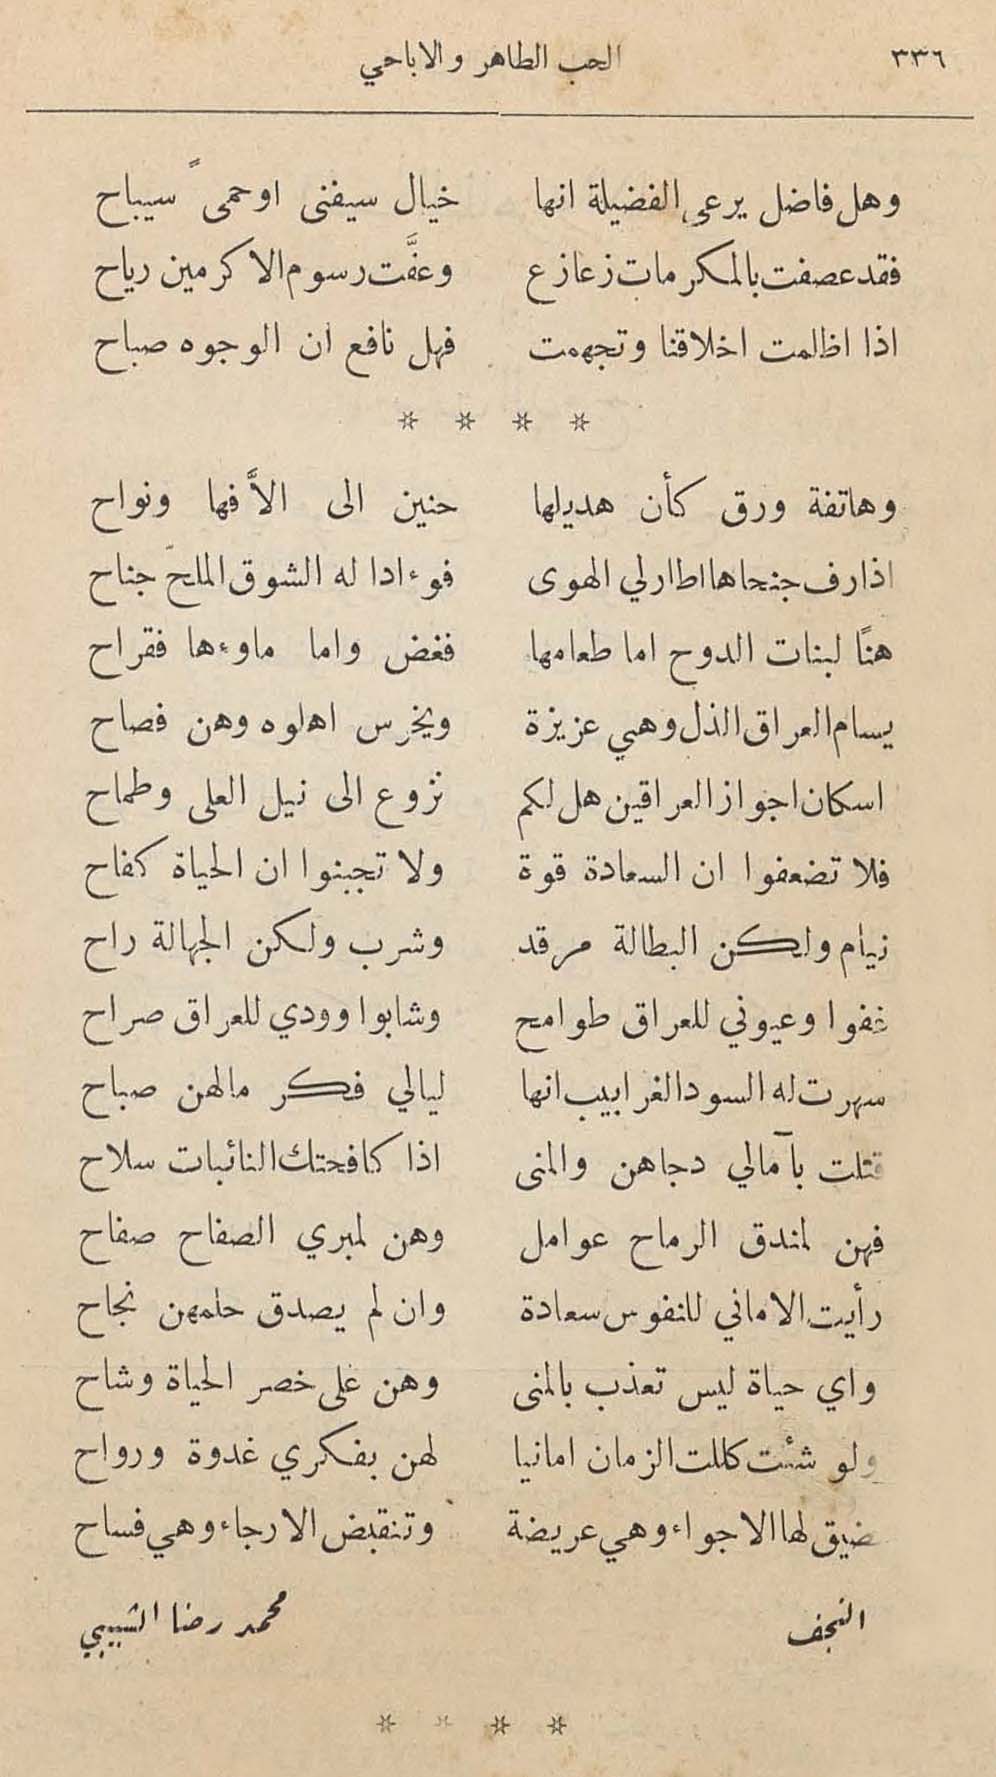 ٣٣٦ الحب الطاهر والاباحي
وهل فاضل يرعى الفضيلة انها خيال سيفنى اوحمىً سيباح
فقد عصفت بالمكرمات زعازع وعفَّت رسوم الاكرمين رياح
اذا اظلمت اخلاقنا وتجهمت فهل نافع ان الوجوه صباح
* * * *
وهاتفة ورق كأن هديلها حنين الى الأَّفها ونواح
اذا رف جنحاها اطار لي الهوى فوءادا له الشوق الملحّ جناح
هنًا لبنات الدوح اما طعامها فغض واما ماوءها فقراح
يسام العراق الذل وهي عزيزة ويخرس اهلوه وهن فصاح
اسكان اجواز العراقين هل لكم نزوع الى نيل العلى وطماح
فلا تضعفوا ان السعادة قوة ولا تجبنوا ان الحياة كفاح
نيام ولكن البطالة مرقد وشرب ولكن الجهالة راح
غفوا وعيوني للعراق طوامح وشابوا وودي للعراق صراح
سهرت له السود الغرابيب انها ليالي فكر مالهن صباح
قتلت بآمالي دجاهن والمنى اذا كافحتك النائبات سلاح
فهن لمندق الرماح عوامل وهن لمبري الصفاح صفاح
رأيت الاماني للنفوس سعادة وان لم يصدق حلمهن نجاح
واي حياة ليس تعذب بالمنى وهن على خصر الحياة وشاح
ولو شئت كللت الزمان امانيا لهن بفكري غدوة ورواح
تضيق لها الاجواء وهي عريضة وتنقبض الارجاء وهي فساح
النجف محمد رضا الشبيبي
* * * *